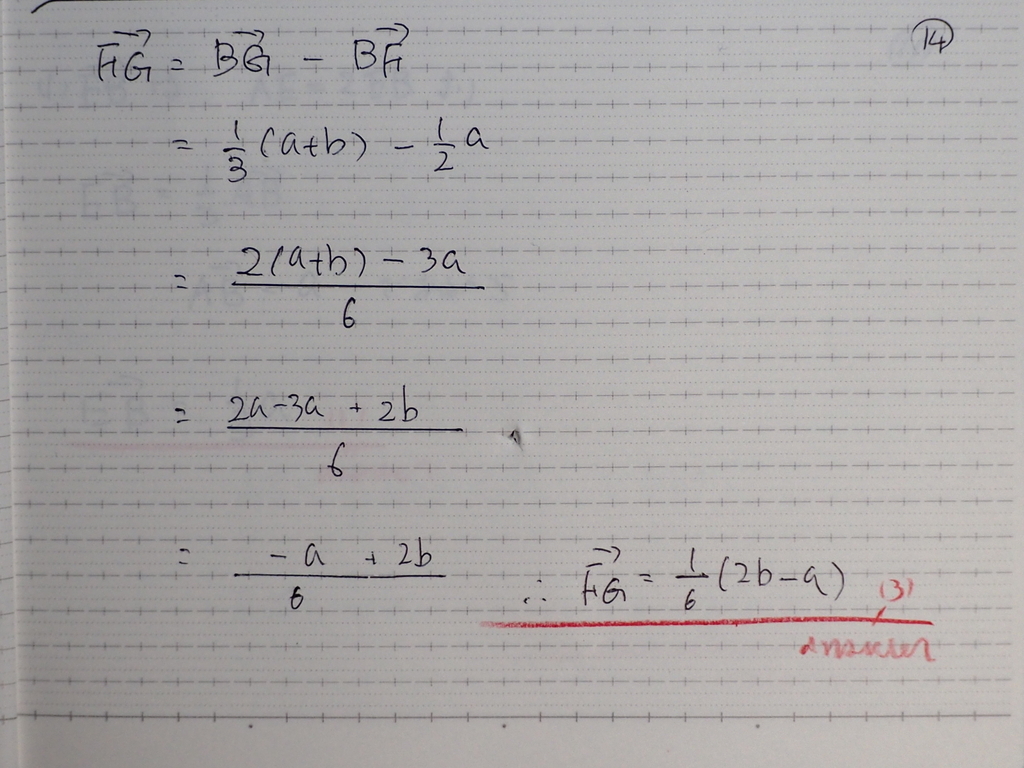 ⑭
→FG = →BG - →BF
= 1/3 (a+b) - 1/2 a
= 2(a+b) - 3a / 6
= 2a-3a + 2b / 6
= -a + 2b / 6 ∴ →FG = 1/6 (2b-a) (3)
answer